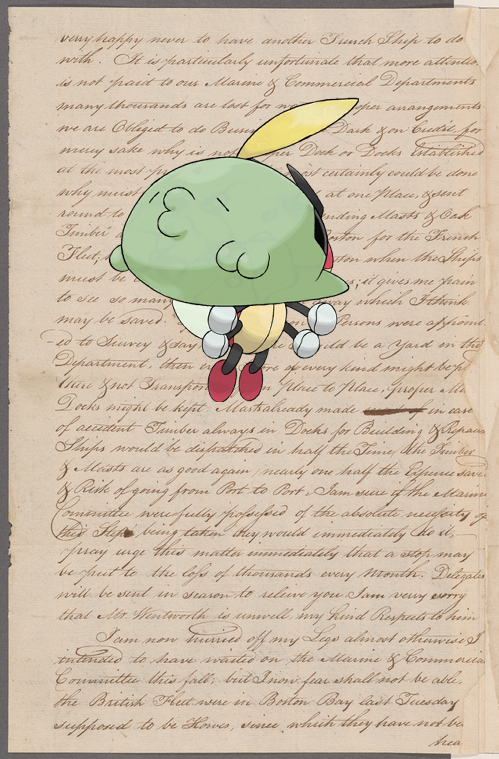 very happy never to have another French Ship to do
with. It is particularly unfortunate that more attention
is not paid to our Marine & Commercial Departments
many thousands are lost for wa per arrangements
we are Obliged to do Busi Dark & on Credit for
mercy sake why is no per Dock or Docks Established
at the most p st certainty could be done
why must at one Place, & sent
round to nding Masts & Oak
Timber a oston for the French
Fleet, ton when the Ships
must be ; it gives me pain
to see so many way which I think
may be saved Persons were appoint
ed to Survey & say ld be a Yard in the
Department, then of every kind might be p
ture & not Transport m Place to Place, proper M
Docks might be kept, Masts already made in case
of accident Timber always in Docks for Building & Repairs
Ships would be dispatched in half the Time, the Timber
& Masts are as good again, nearly one half the Expence save
& Risk of going from Port to Port, I am sure if the Marine
Committee were fully possessed of the absolute necessity of
this Step being taken they would immediately do it,
pray urge this matter immediately that a stop may
be put to the loss of thousands every Month. Delegates
will be sent in season to relieve you I am very sorry
that Mr. Wentworth is unwell my kind Respects to him
I am now hurried off my Legs almost otherwise I
intended to have waited on the Marine & Commercial
Committee this fall, but I now fear shall not be able
the British Fleet were in Boston Bay last Tuesday
supposed to be Howes, since which they have not be
hea